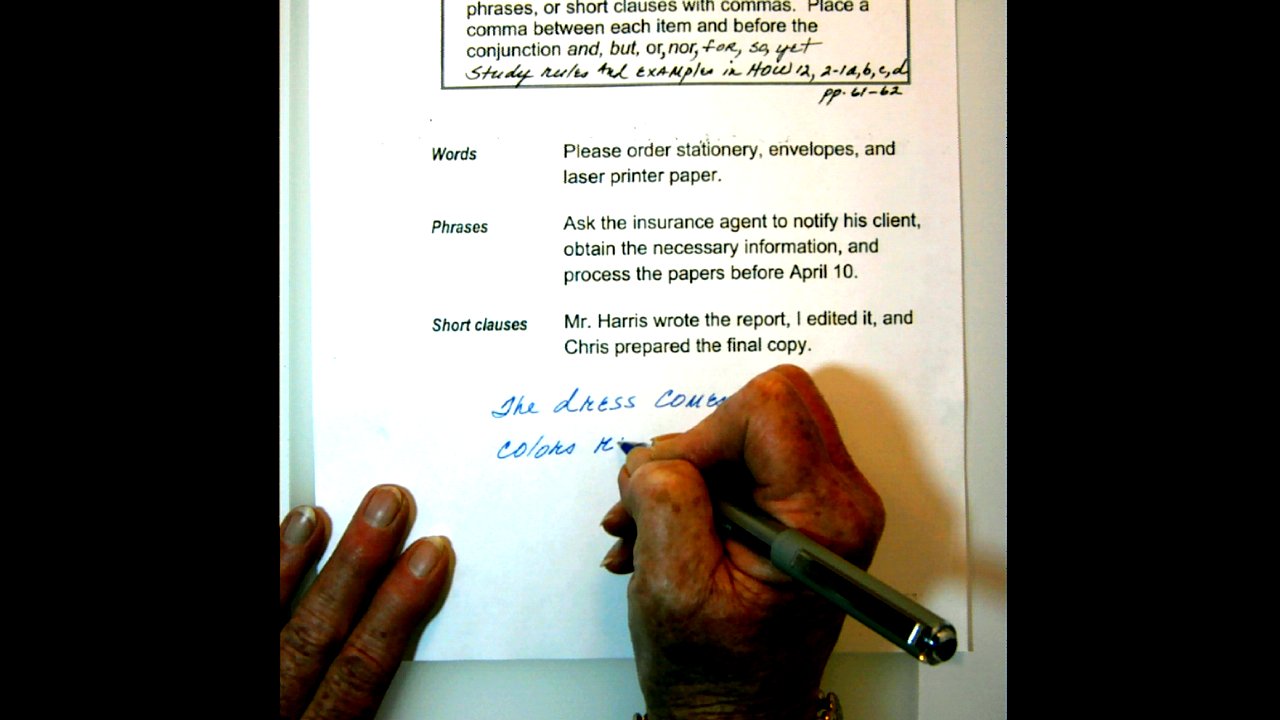 phrases, or short clauses with commas. Place a
comma between each item and before the
conjunction and, but, or, nor, for, so, yet
Study rules and examples in HOW 12, 2-1a,b,c,d
pp. 61-62
Words Please order stationery, envelopes, and
laser printer paper.
Phrases Ask the insurance agent to notify his client,
obtain the necessary information, and
process the papers before April 10.
Short clauses Mr. Harris wrote the report, I edited it, and
Chris prepared the final copy.
The dress comes
colors